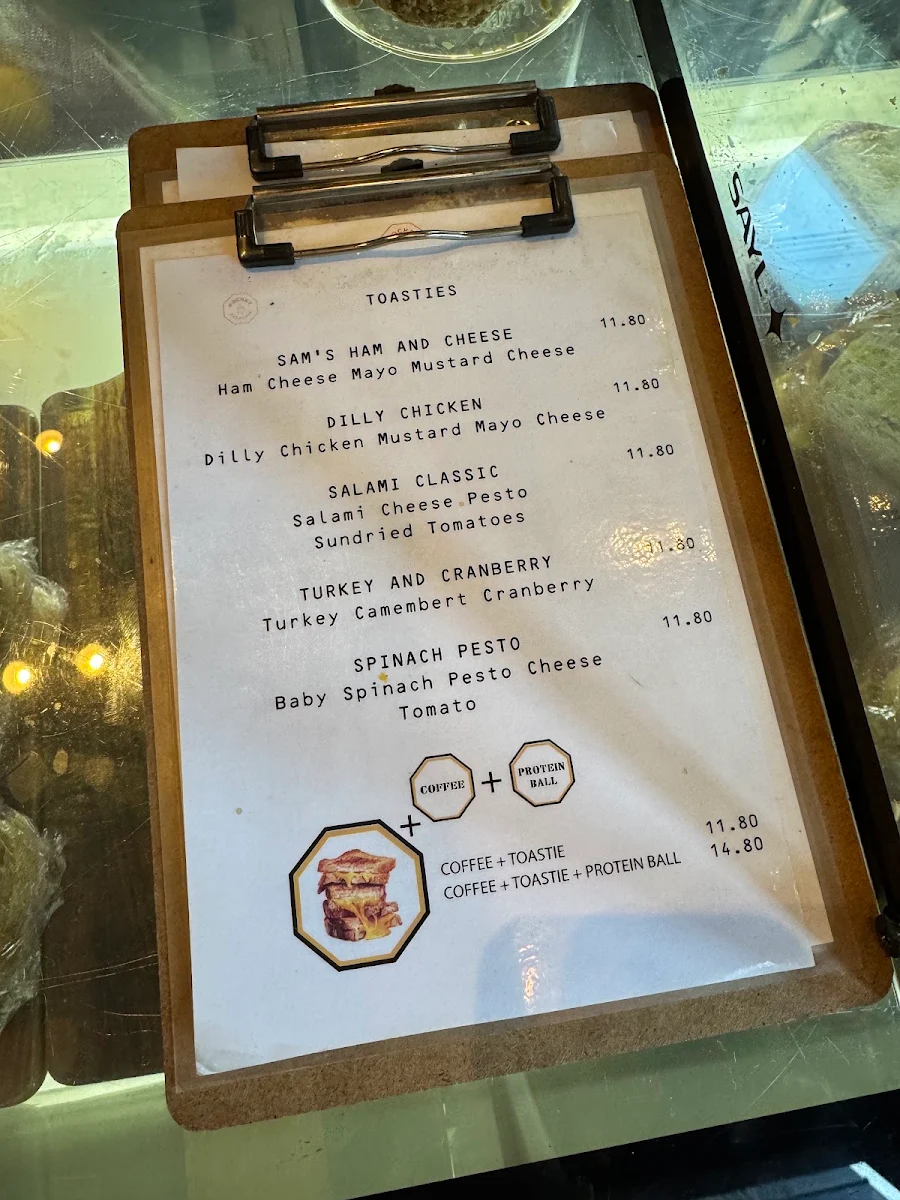 TOASTIES
SAM'S HAM AND CHEESE 11.80
Ham Cheese Mayo Mustard Cheese
DILLY CHICKEN 11.80
Dilly Chicken Mustard Mayo Cheese
SALAMI CLASSIC 11.80
Salami Cheese Pesto
Sundried Tomatoes
TURKEY AND CRANBERRY 11.80
Turkey Camembert Cranberry
SPINACH PESTO 11.80
Baby Spinach Pesto Cheese
Tomato
COFFEE + PROTEIN
BALL
+
COFFEE + TOASTIE 11.80
COFFEE + TOASTIE + PROTEIN BALL 14.80